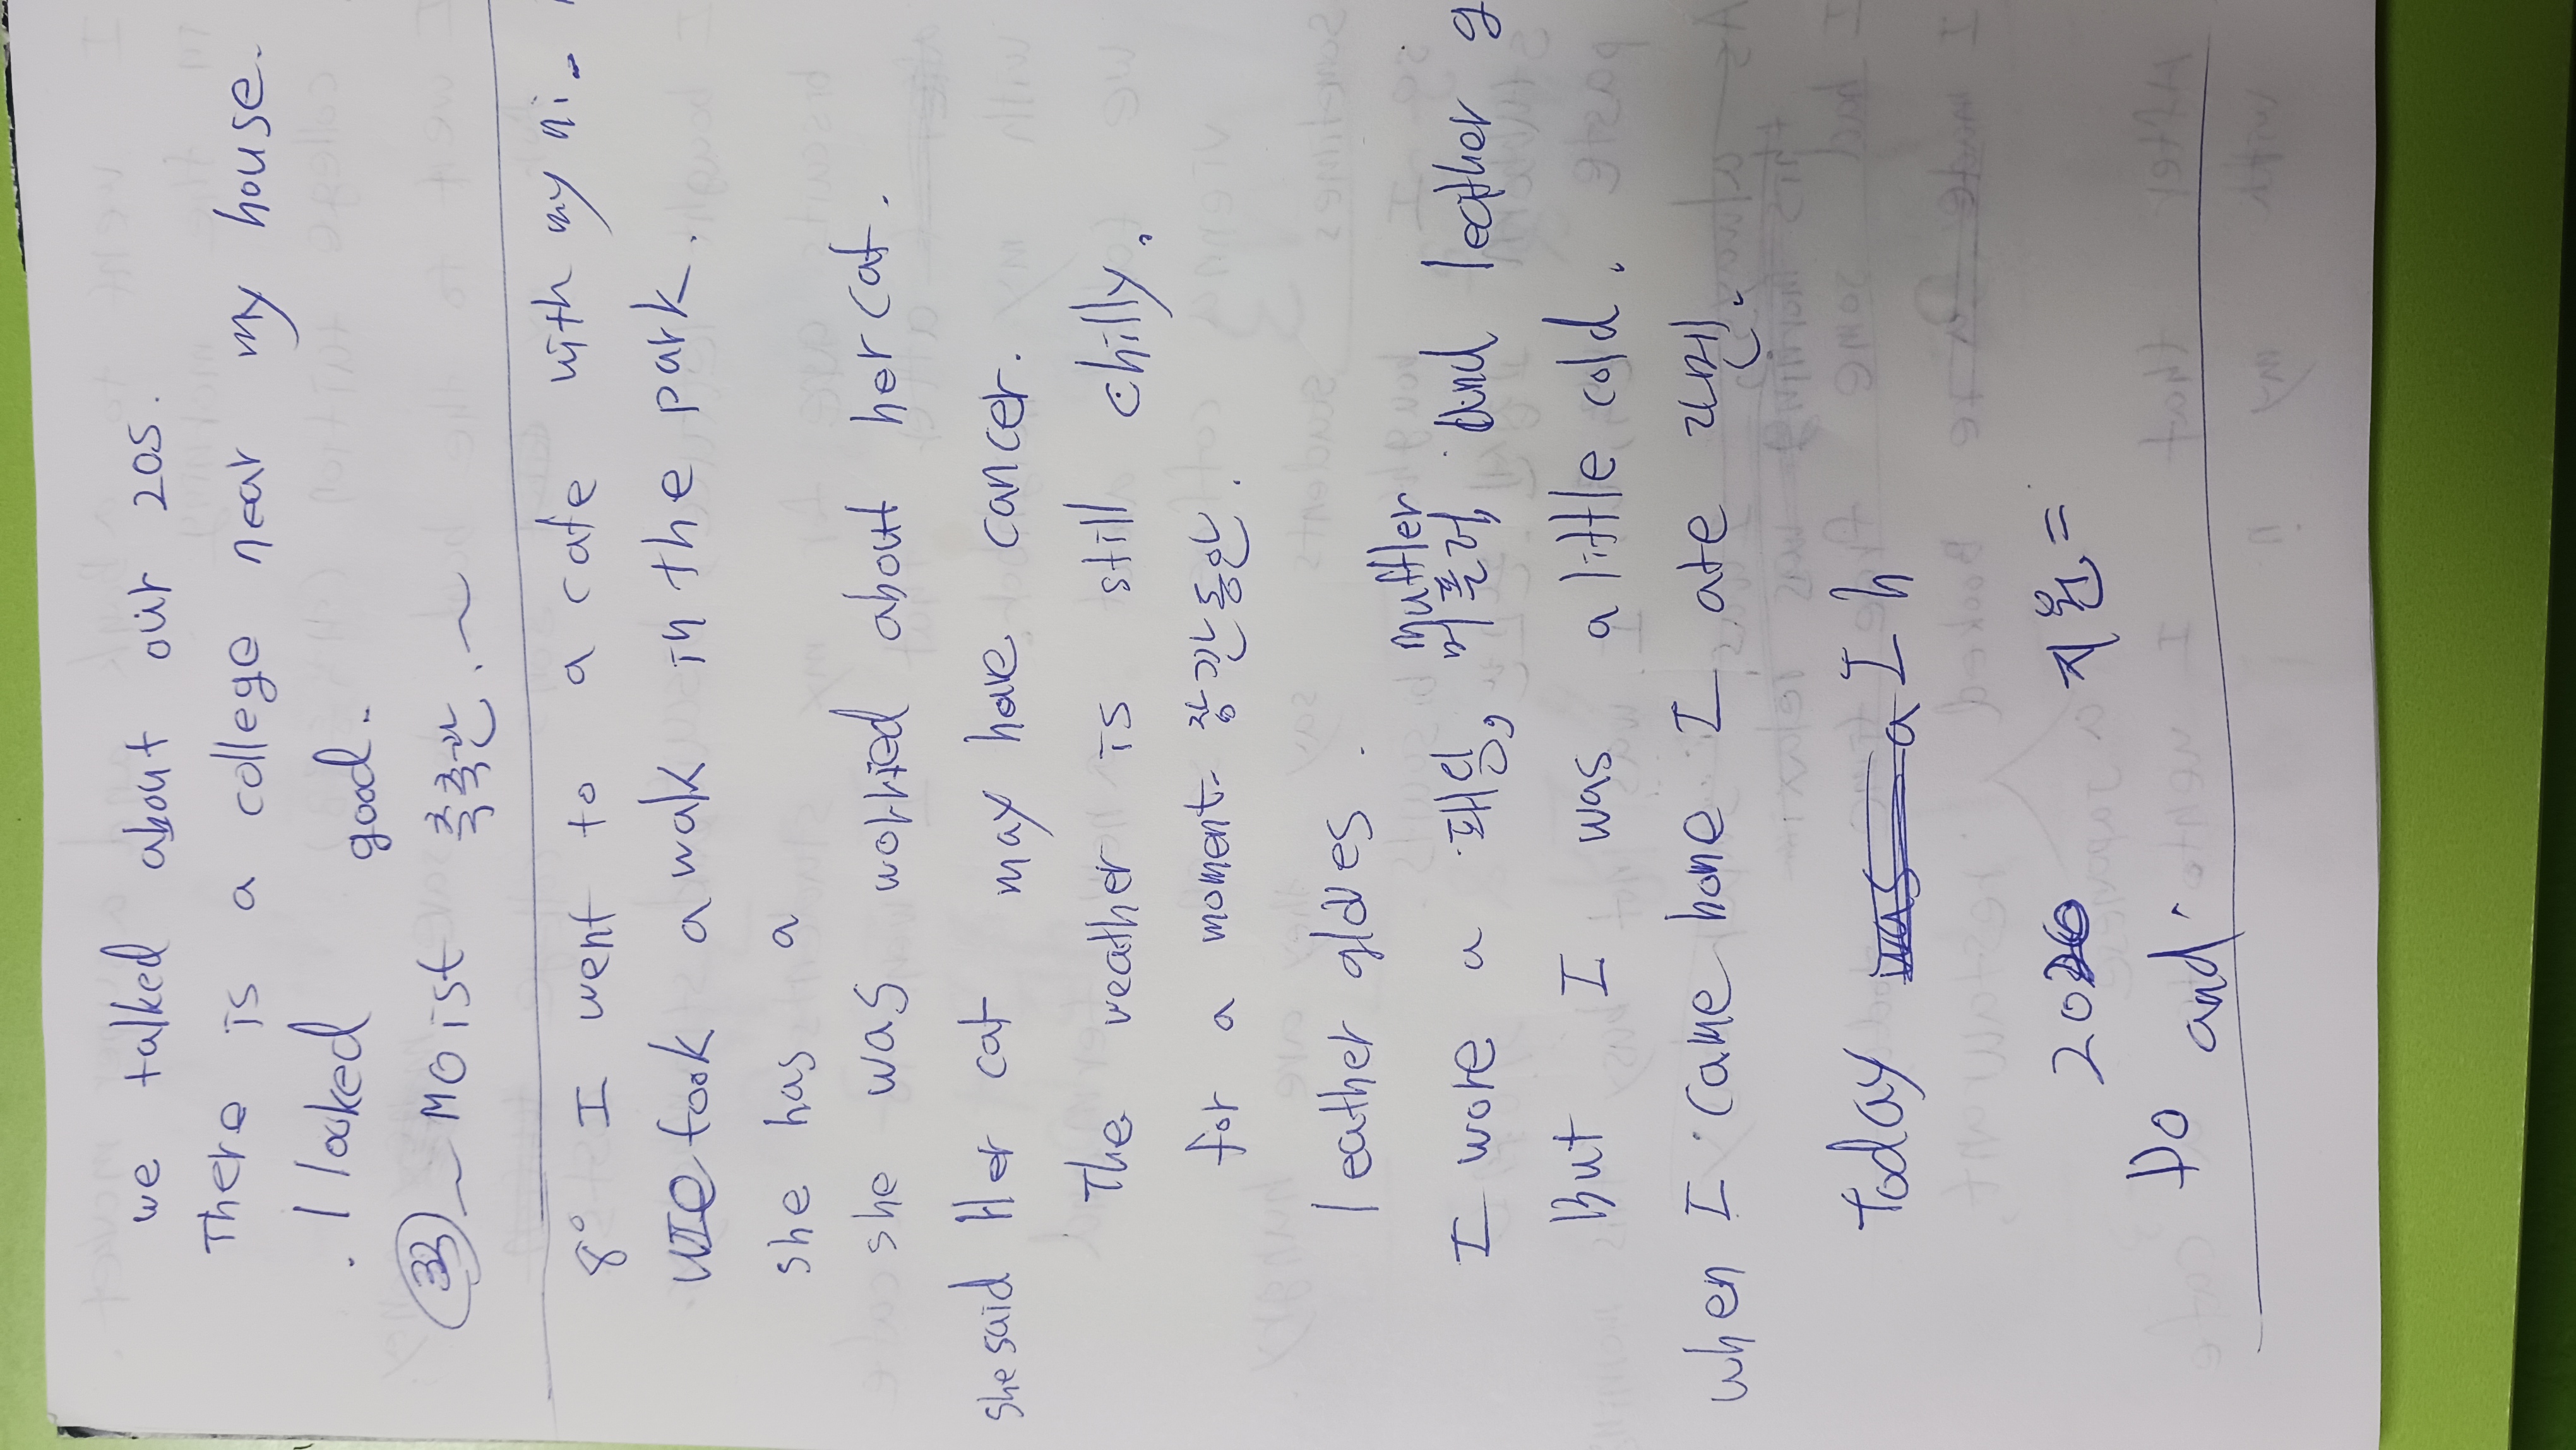 we talked about our 20s.
There is a college near my house.
. I looked good.
33 ~ Moist 촉촉한. ~
8° I went to a cafe with my ni.
We took a wak in the park.
she has a
she was worried about her cat.
she said Her cat may have cancer.
The weather is still chilly.
for a moment. 잠깐동안.
leather gloves.
muffler
I wore a 패딩, 머플러, and leather g
but I was a little cold.
when I came home I ate 라면.
today I h
2026 지원 =
Do and.